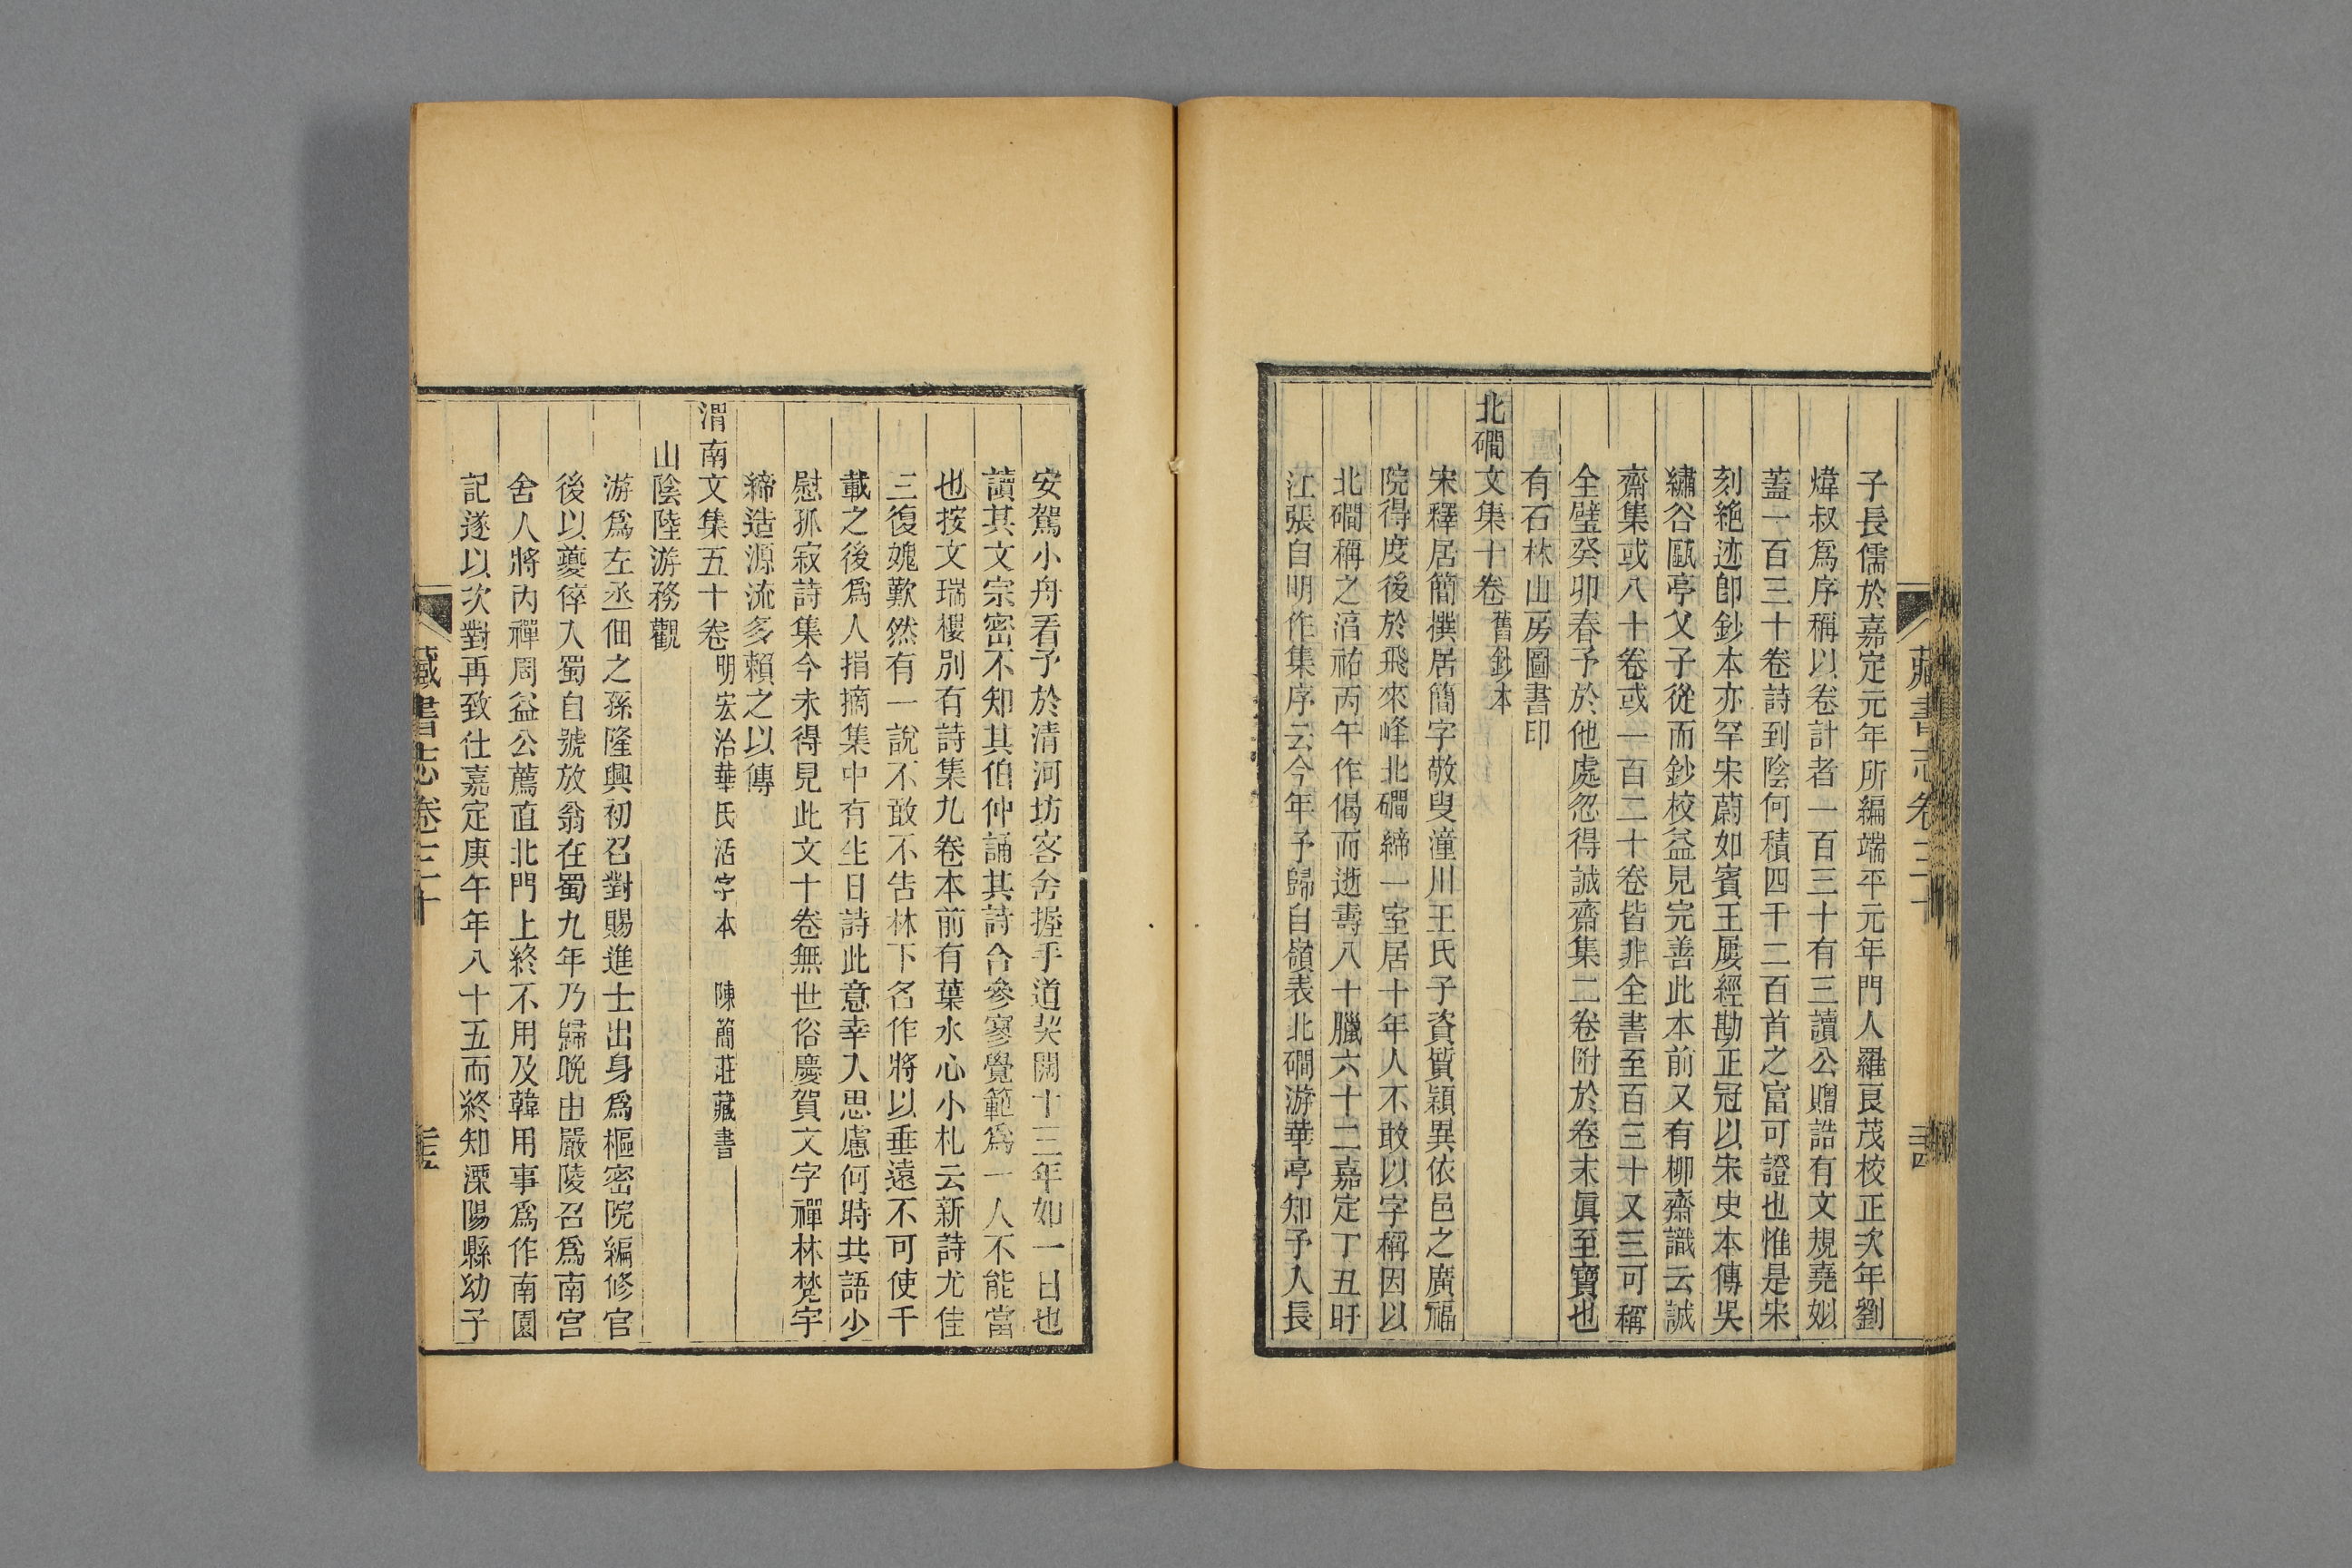 子長儒於嘉定元年所編端平元年門人羅良茂校正次年劉
煒叔爲序稱以卷計者一百三十有三讀公贈誥有文規堯姒
蓋一百三十卷詩到陰何積四千二百首之富可證也惟是宋
刻絶迹卽鈔本亦罕宋蔚如賓王屢經勘正冠以宋史本傳吳
繡谷甌亭父子從而鈔校益見完善此本前又有柳齋識云誠
齋集或八十卷或一百二十卷皆非全書至百三十又三可稱
全璧癸卯春予於他處忽得誠齋集二卷附於卷末眞至寶也
有石林山房圖書印
北磵文集十卷 舊鈔本
宋釋居簡撰居簡字敬叟潼川王氏子資質穎異依邑之廣福
院得度後於飛來峰北磵締一室居十年人不敢以字稱因以
北磵稱之湻祐丙午作偈而逝壽八十臘六十二嘉定丁丑盱
江張自明作集序云今年予歸自嶺表北磵游華亭知予入長
藏書志卷三十
三十四
安駕小舟看予於清河坊客舍握手道契闊十三年如一日也
讀其文宗密不知其伯仲誦其詩合參寥覺範爲一人不能當
也按文瑞樓別有詩集九卷本前有葉水心小札云新詩尤佳
三復媿歎然有一說不敢不告林下名作將以垂遠不可使千
載之後爲人指摘集中有生日詩此意幸入思慮何時共語少
慰孤寂詩集今未得見此文十卷無世俗慶賀文字禪林梵宇
締造源流多賴之以傳
渭南文集五十卷 明宏治華氏活字本 陳簡莊藏書
山陰陸游務觀
游爲左丞佃之孫隆興初召對賜進士出身爲樞密院編修官
後以夔倅入蜀自號放翁在蜀九年乃歸晩由嚴陵召爲南宮
舍人將內禪周益公薦直北門上終不用及韓用事爲作南園
記遂以次對再致仕嘉定庚午年八十五而終知溧陽縣幼子
藏書志卷三十
三十五